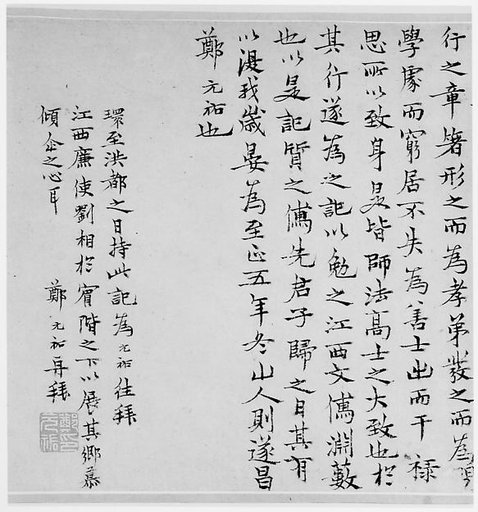 行之章著形之而為孝弟發之而為
學處而窮居不失為善士出而干祿
思所以致身是皆師法高士之大致也於
其行遂為之記以勉之江西文儒淵藪
也以是記質之儒先君子歸之日其有
以湜我歲晏為至正五年冬山人則遂昌
鄭元祐也
環至洪都之日持此記為元祐往拜
江西廉使劉相於賓階之下以展其鄉慕
傾企之心耳
鄭元祐再拜